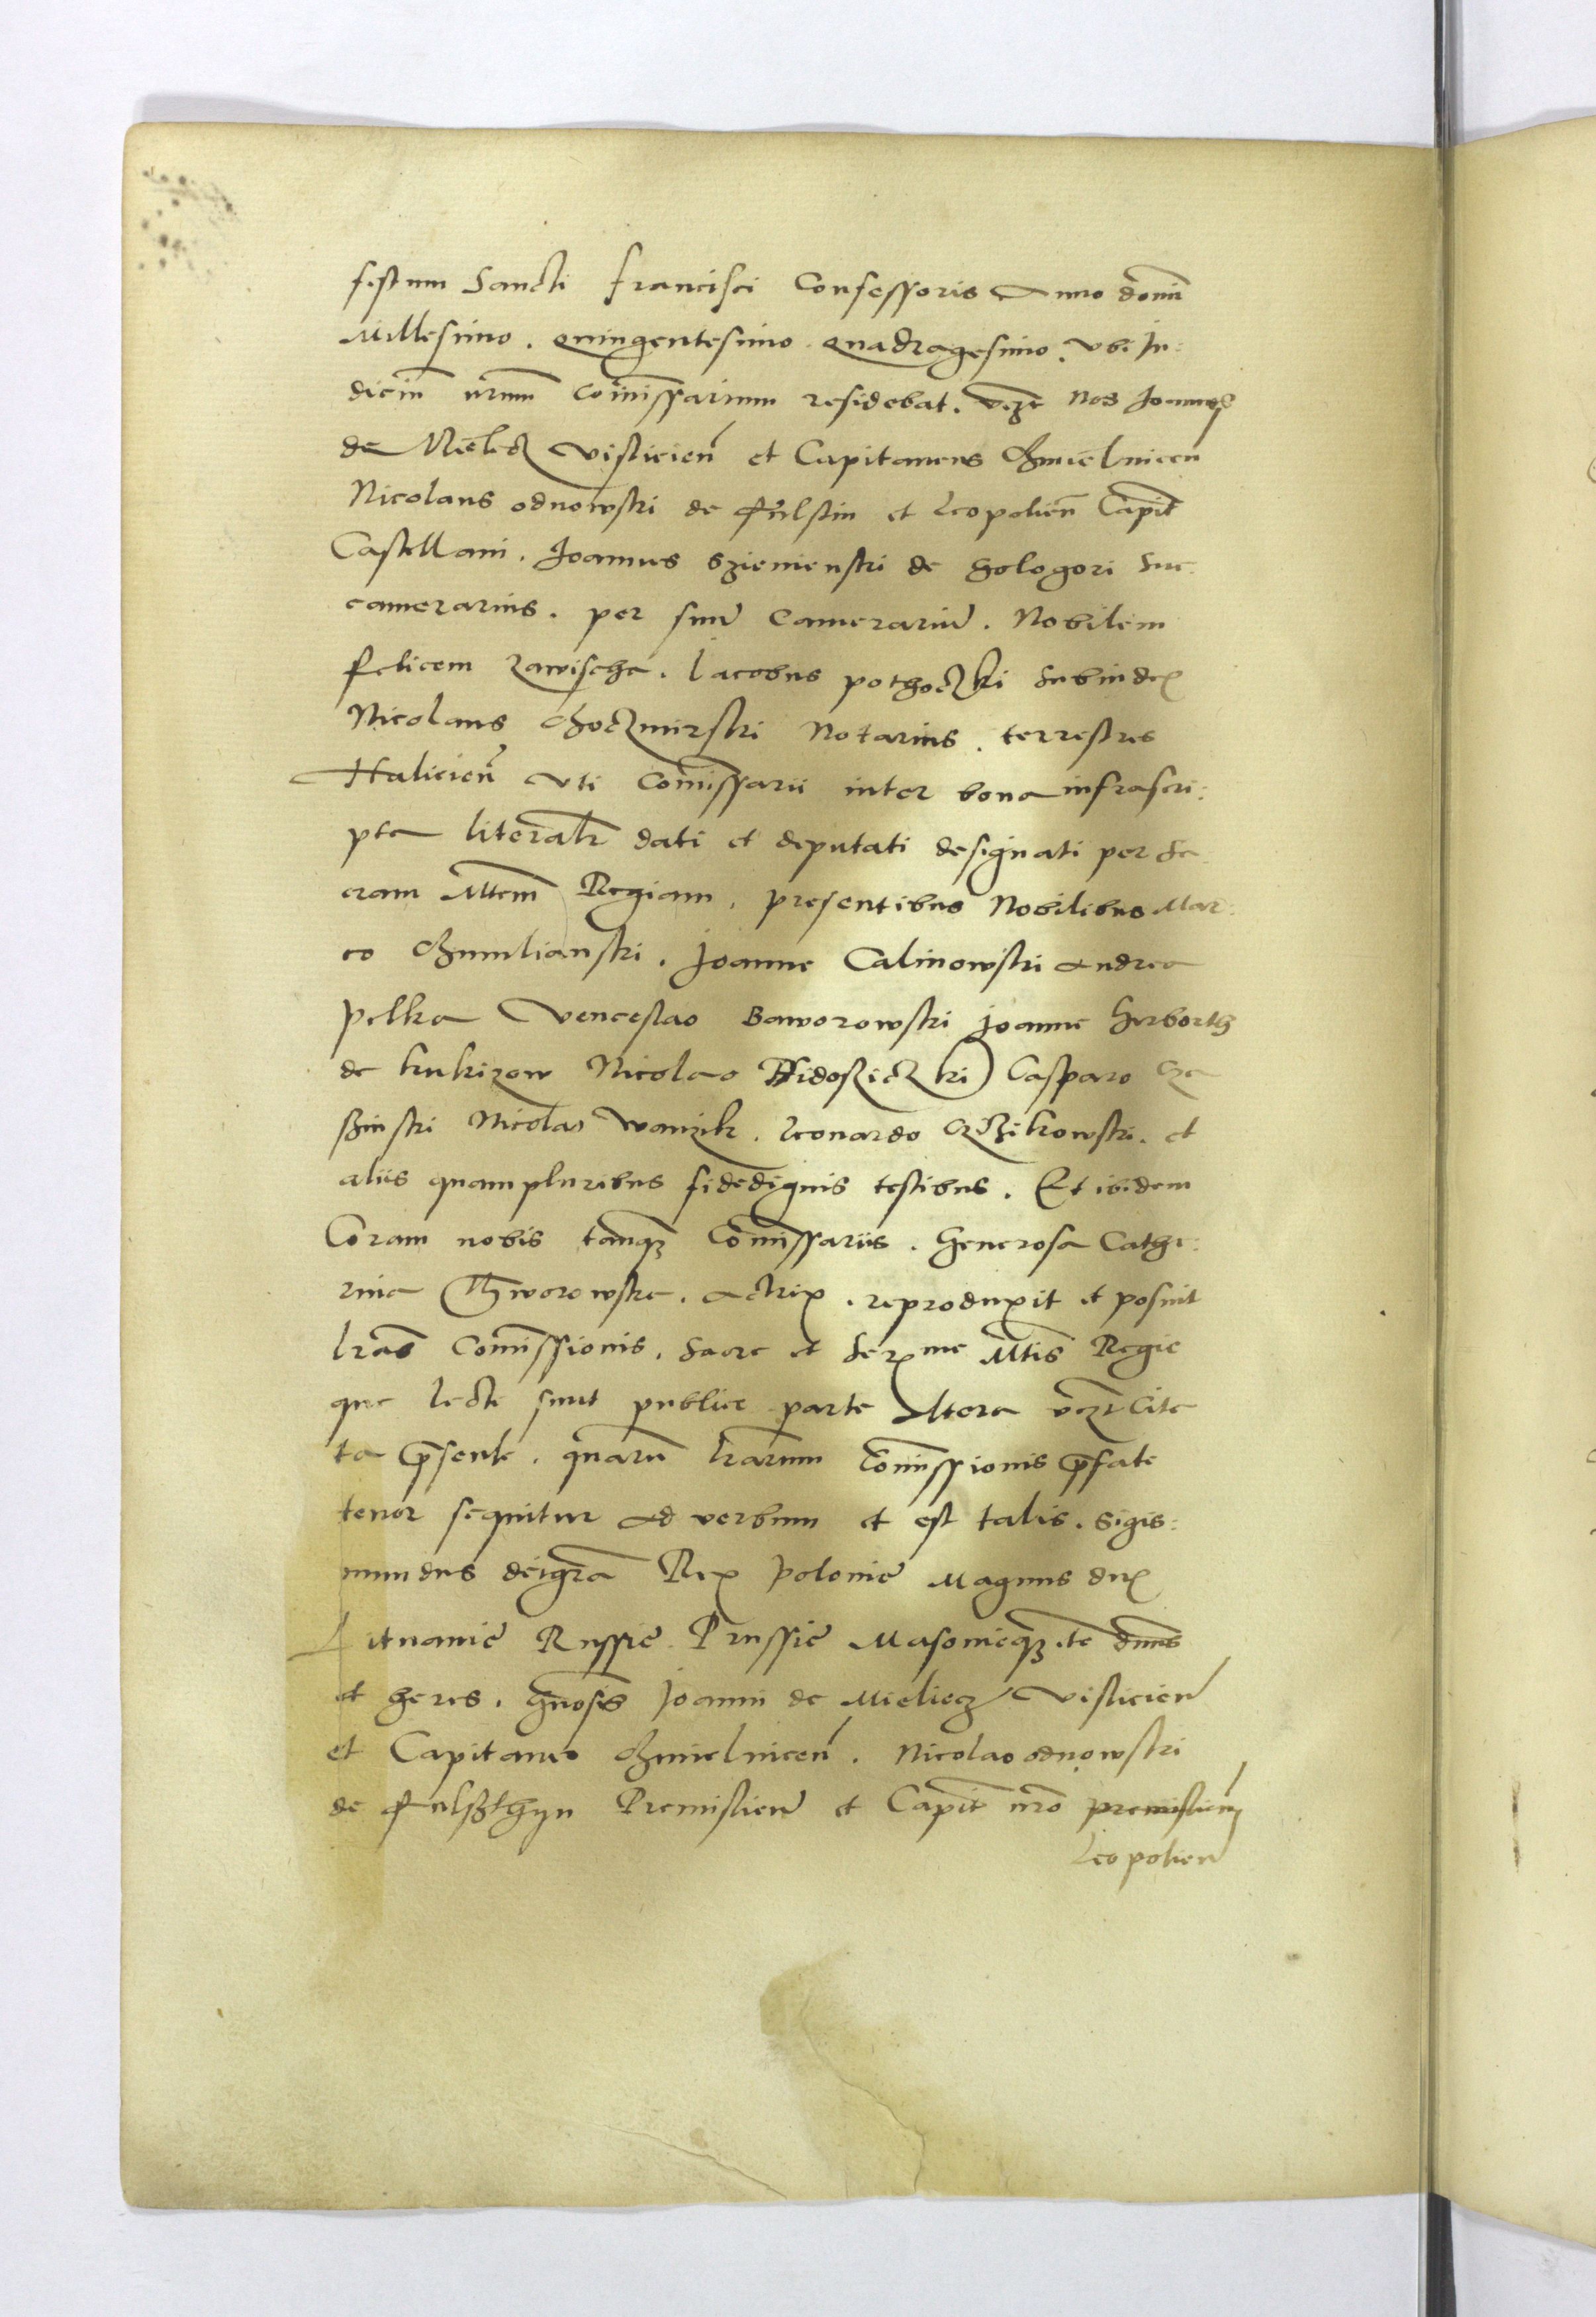 festum Sancti Francisci Confessoris Anno domini
Millesimo. Quingentesimo. Quadragesimo. Vbi Iu:
diciū nrūm Com̄issarium residebat. vꝫt Nos Joannes
de Mielecz Visliciēn et Capitaneus Chmielnicen
Nicolaus odnowski de Fulstin et Leopoliēn Capit̄
Castellani. Joannes Szienienski de Gologori Suc
camerarius. per suū Camerariū. Nobilem
Felicem Zawischa. Jacobus pothoczki Subiudex
Nicolaus Choczmirski Notarius. terrestres
Haliciēn Vti Com̄issarii inter bona infrascri:
pta literalr̄ dati et deputati designati per Sa
cram Mtem̄ Regiam. presentibus Nobilibus Mar:
co Chumlianski. Joanne Calinowski Andrea
pelka Venceslao Baworowski Joanne Herborth
de kukizow Nicolao Hidosziczki Casparo
Nicolao Wanzik. Leonardo et
aliis quampluribus fidedignis testibus. Et ibidem
Coram nobis tanqꝫ Com̄issariis. Generosa Cathe:
rina Thworowska. Actrix. reproduxit et posuit
lrās Com̄issionis. Sacre et Serxme Mtis̄ Regie
que lecte sunt publice parte Altera vꝫt Cita
ta p̄sente. quarū lrārum Com̄issionis p̄fate
tenor sequitur ad verbum et est talis. Sigis:
mundus deigrā Rex polonie Magnus dux
Lituanie Russie Prussie Masovieqꝫ etc dn̄s
et heres. Gnōsis Joanni de Mieliecz Visliciēn
et Capitaneo Chmielnicēn. Nicolao odnowski
de Fulszthyn Premisliēn et Capit̄ nrō premisliēn
Leopoliēn